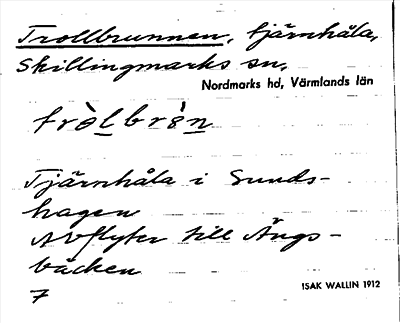 Trollbrunnen, tjärnhåla,
Skillingmarks sn,
Nordmarks hd, Värmlands län
tròlbrə̀n
Tjärnhåla i Sunds-
hagen
Avflyter till Ängs-
bäcken
7
ISAK WALLIN 1912